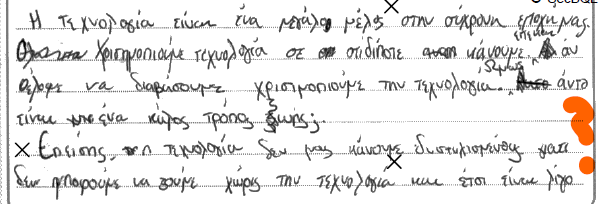 Η τεχνολογία είναι ένα μεγάλο μέλος στην σύχρονη εποχη μας
Χριστηροποιουμε τεχνολογία σε οτιδίποτε κάνουμε άν
θέλουμε να διαβασουμε χριστηροποιουμε την τεχνολογια. Ομως άυτο
είναι ένα καλος τρόπος ζωής;
Επείσης, η τεχνολογία δεν μας κάνουμε δυστυχισμένους γιατι
δεν μπορούμε να ζούμε χωρίς την τεχνολογία και έτσι είναι λίγο